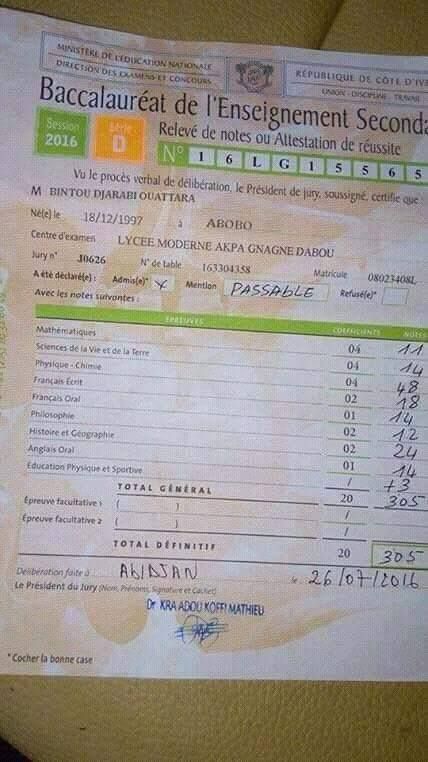 MINISTÈRE DE L'ÉDUCATION NATIONALE
DIRECTION DES EXAMENS ET CONCOURS
RÉPUBLIQUE DE CÔTE D'IV
UNION - DISCIPLINE - TRAVAIL
Baccalauréat de l'Enseignement Seconda
Session 2016
Série D
Relevé de notes ou Attestation de réussite
N° 1 6 L G 1 5 5 6 5
Vu le procès verbal de délibération, le Président de jury, soussigné, certifie que :
M BINTOU DJARABI OUATTARA
Né(e) le 18/12/1997 à ABOBO
Centre d'examen LYCEE MODERNE AKPA GNAGNE DABOU
Jury n° J0626 N° de table 163304358 Matricule 08023408L
A été déclaré(e) : Admis(e)* x Mention PASSABLE Refusé(e)*
Avec les notes suivantes :
ÉPREUVES COEFFICIENTS NOTES
Mathématiques 04 11
Sciences de la Vie et de la Terre 04 14
Physique - Chimie 04 48
Français Écrit 02 18
Français Oral 01 14
Philosophie 02 12
Histoire et Géographie 02 24
Anglais Oral 01 14
Education Physique et Sportive / +3
TOTAL GÉNÉRAL 20 305
Épreuve facultative 1 ( ) /
Épreuve facultative 2 ( ) /
TOTAL DÉFINITIF 20 305
Délibération faite à ABIDJAN le 26/07/2016
Le Président du Jury (Nom, Prénoms, Signature et Cachet)
Dr KRA ADOU KOFFI MATHIEU
* Cocher la bonne case